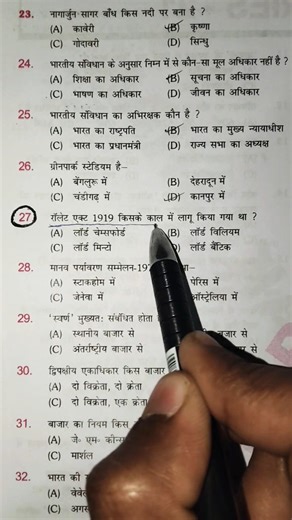 23. नागार्जुन सागर बाँध किस नदी पर बना है ?
(A) कावेरी (B) कृष्णा
(C) गोदावरी (D) सिन्धु
24. भारतीय संविधान के अनुसार निम्न में से कौन-सा मूल अधिकार नहीं है ?
(A) शिक्षा का अधिकार (B) सूचना का अधिकार
(C) भाषण का अधिकार (D) जीवन का अधिकार
25. भारतीय संविधान का अभिरक्षक कौन है ?
(A) भारत का राष्ट्रपति (B) भारत का मुख्य न्यायाधीश
(C) भारत का प्रधानमंत्री (D) राज्य सभा का अध्यक्ष
26. ग्रीनपार्क स्टेडियम है–
(A) बेंगलुरू में (B) देहरादून में
(C) चंडीगढ़ में (D) कानपुर में
27. रॉलेट एक्ट 1919 किसके काल में लागू किया गया था ?
(A) लॉर्ड चेम्सफोर्ड (B) लॉर्ड विलियम
(C) लॉर्ड मिन्टो लॉर्ड बैंटिक
28. मानव पर्यावरण सम्मेलन-19
(A) स्टाकहोम में पेरिस में
(C) जेनेवा में ऑस्ट्रेलिया में
29. 'स्वर्ण' मुख्यतः संबंधित होता
(A) स्थानीय बाजार से बाजार से
(C) अंतर्राष्ट्रीय बाजार से से
30. द्विपक्षीय एकाधिकार किस बाजार
(A) दो विक्रेता, दो क्रेता
(C) दो विक्रेता, एक क्रेता
31. बाजार का नियम किस
(A) जे० एम०
(C) मार्शल
32. भारत की
(A)
(C)